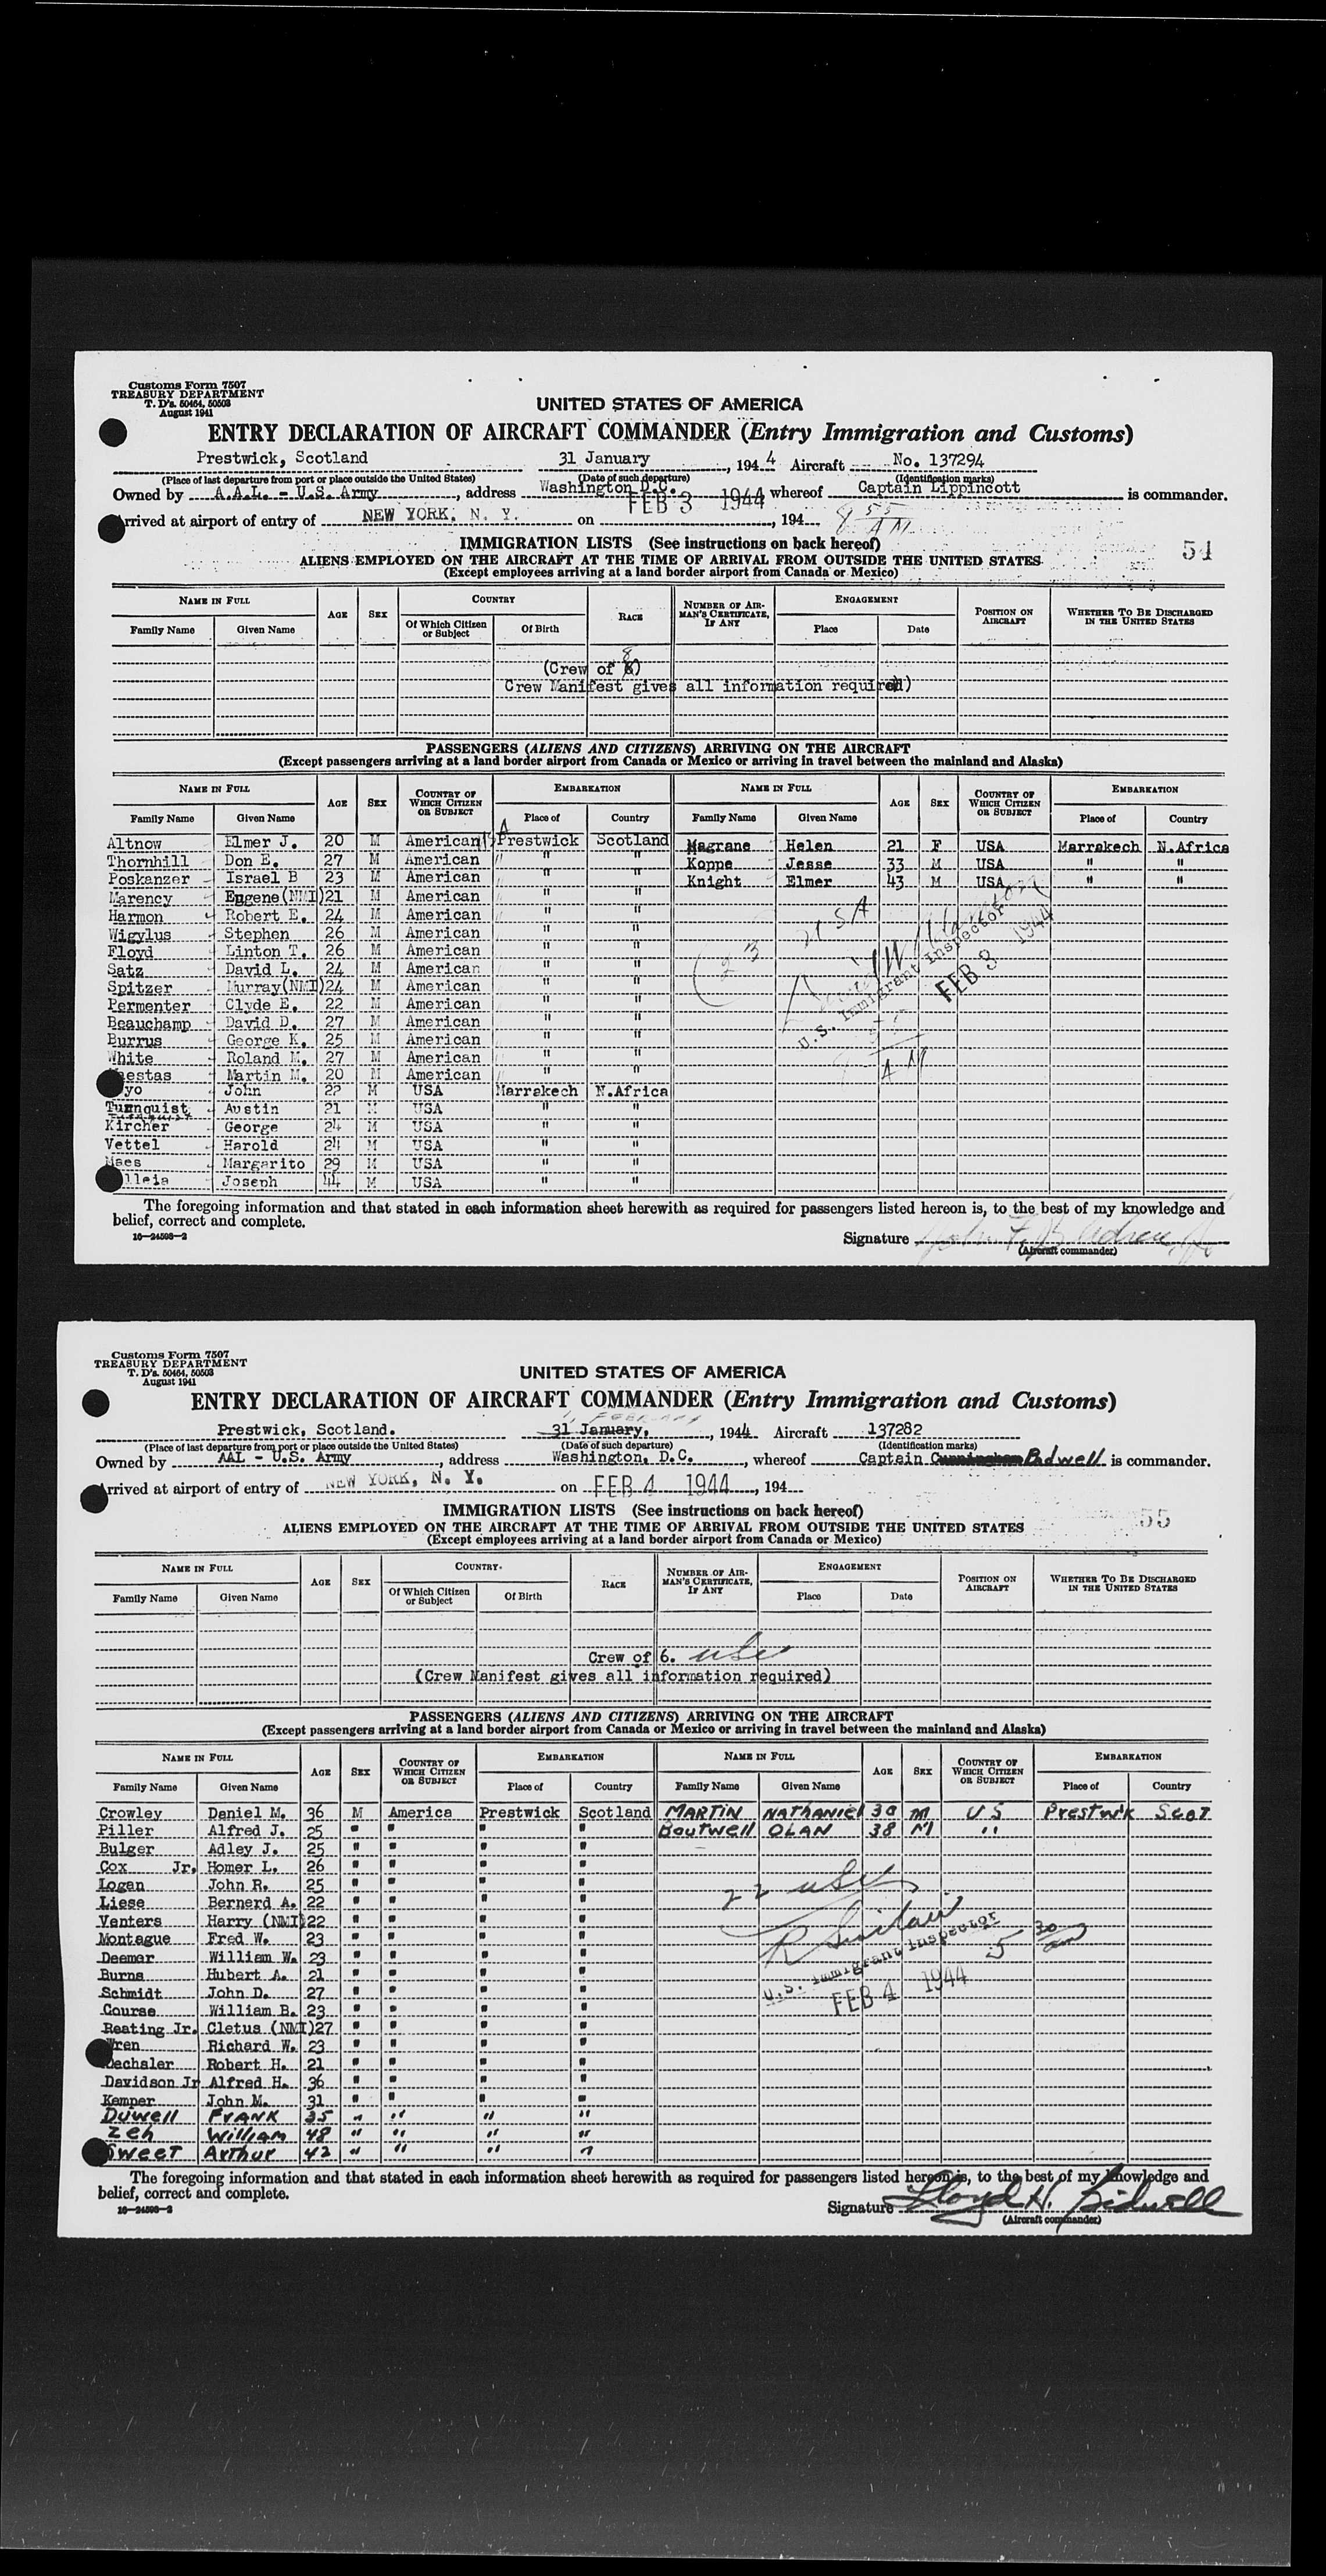 Customs Form 7507
TREASURY DEPARTMENT
T. D's. 50464, 50503
August 1941
UNITED STATES OF AMERICA
ENTRY DECLARATION OF AIRCRAFT COMMANDER (Entry Immigration and Customs)
Prestwick, Scotland 31 January, 1944 Aircraft No. 137294
(Place of last departure from port or place outside the United States) (Date of such departure) (Identification marks)
Owned by A.A.L. - U.S. Army, address Washington D.C. whereof Captain Lippincott is commander.
Arrived at airport of entry of NEW YORK, N. Y. on FEB 3 1944, 194 8 55 AM
IMMIGRATION LISTS (See instructions on back hereof)
54
ALIENS EMPLOYED ON THE AIRCRAFT AT THE TIME OF ARRIVAL FROM OUTSIDE THE UNITED STATES
(Except employees arriving at a land border airport from Canada or Mexico)
NAME IN FULL AGE SEX COUNTRY RACE NUMBER OF AIRMAN'S CERTIFICATE, IF ANY ENGAGEMENT POSITION ON AIRCRAFT WHETHER TO BE DISCHARGED IN THE UNITED STATES
Family Name Given Name Of Which Citizen or Subject Of Birth Place Date
(Crew of 8)
Crew Manifest gives all information required)
PASSENGERS (ALIENS AND CITIZENS) ARRIVING ON THE AIRCRAFT
(Except passengers arriving at a land border airport from Canada or Mexico or arriving in travel between the mainland and Alaska)
NAME IN FULL AGE SEX COUNTRY OF WHICH CITIZEN OR SUBJECT EMBARKATION NAME IN FULL AGE SEX COUNTRY OF WHICH CITIZEN OR SUBJECT EMBARKATION
Family Name Given Name Place of Country Family Name Given Name Place of Country
Altnow Elmer J. 20 M American Prestwick Scotland Magrane Helen 21 F USA Marrakech N.Africa
Thornhill Don E. 27 M American " " Koppe Jesse 33 M USA " "
Poskanzer Israel B 23 M American " " Knight Elmer 43 M USA " "
Marency Eugene(NMI) 21 M American " "
Harmon Robert E. 24 M American " "
Wigylus Stephen 26 M American " "
Floyd Linton T. 26 M American " "
Satz David L. 24 M American " "
Spitzer Murray(NMI) 24 M American " "
Permenter Clyde E. 22 M American " "
Beauchamp David D. 27 M American " "
Burrus George K. 25 M American " "
White Roland M. 27 M American " "
Martin M. 20 M American " "
John 22 M USA Marrakech N.Africa
Turnquist Austin 21 M USA " "
Kircher George 24 M USA " "
Vettel Harold 24 M USA " "
Maes Margarito 29 M USA " "
Joseph 44 M USA " "
23 USA
U.S. Immigrant Inspector
FEB 3 1944
8 55 AM
The foregoing information and that stated in each information sheet herewith as required for passengers listed hereon is, to the best of my knowledge and
belief, correct and complete.
16—24598—2
Signature
(Aircraft commander)
Customs Form 7507
TREASURY DEPARTMENT
T. D's. 50464, 50503
August 1941
UNITED STATES OF AMERICA
ENTRY DECLARATION OF AIRCRAFT COMMANDER (Entry Immigration and Customs)
February
Prestwick, Scotland. 31 January, 1944 Aircraft 137282
(Place of last departure from port or place outside the United States) (Date of such departure) (Identification marks)
Owned by AAL - U.S. Army, address Washington, D.C., whereof Captain Cunningham Bidwell is commander.
Arrived at airport of entry of NEW YORK, N. Y. on FEB 4 1944, 194
IMMIGRATION LISTS (See instructions on back hereof)
55
ALIENS EMPLOYED ON THE AIRCRAFT AT THE TIME OF ARRIVAL FROM OUTSIDE THE UNITED STATES
(Except employees arriving at a land border airport from Canada or Mexico)
NAME IN FULL AGE SEX COUNTRY RACE NUMBER OF AIRMAN'S CERTIFICATE, IF ANY ENGAGEMENT POSITION ON AIRCRAFT WHETHER TO BE DISCHARGED IN THE UNITED STATES
Family Name Given Name Of Which Citizen or Subject Of Birth Place Date
Crew of 6. usc
(Crew Manifest gives all information required)
PASSENGERS (ALIENS AND CITIZENS) ARRIVING ON THE AIRCRAFT
(Except passengers arriving at a land border airport from Canada or Mexico or arriving in travel between the mainland and Alaska)
NAME IN FULL AGE SEX COUNTRY OF WHICH CITIZEN OR SUBJECT EMBARKATION NAME IN FULL AGE SEX COUNTRY OF WHICH CITIZEN OR SUBJECT EMBARKATION
Family Name Given Name Place of Country Family Name Given Name Place of Country
Crowley Daniel M. 36 M America Prestwick Scotland MARTIN NATHANIEL 30 M US Prestwik Scot
Piller Alfred J. 25 " " " " Boutwell OLAN 38 M "
Bulger Adley J. 25 " " " "
Cox Jr. Homer L. 26 " " " "
Logan John R. 25 " " " "
Liese Bernerd A. 22 " " " "
Venters Harry (NMI) 22 " " " "
Montague Fred W. 23 " " " "
Deemer William W. 23 " " " "
Burns Hubert A. 21 " " " "
Schmidt John D. 27 " " " "
Course William B. 23 " " " "
Reating Jr. Cletus (NMI) 27 " " " "
Wren Richard W. 23 " " " "
Robert H. 21 " " " "
Davidson Jr Alfred H. 36 " " " "
Kemper John M. 31 " " " "
Duwell FRANK 35 " " " "
Zeh William 48 " " " "
Sweet Arthur 42 " " " "
22 usc
U.S. Immigrant Inspector 5 30 am
FEB 4 1944
The foregoing information and that stated in each information sheet herewith as required for passengers listed hereon is, to the best of my knowledge and
belief, correct and complete.
16—24598—2
Signature Lloyd H. Bidwell
(Aircraft commander)